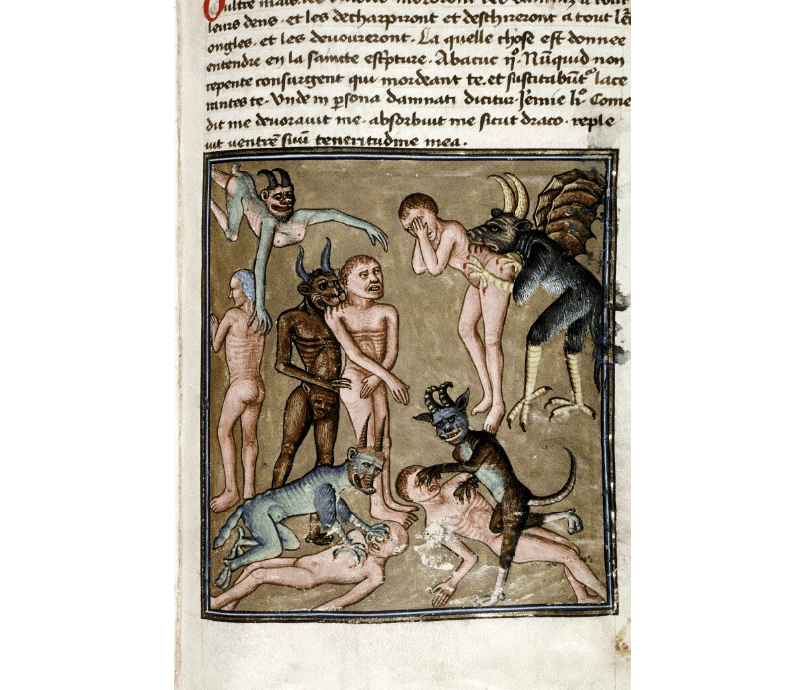 Oultre mais les
leurs dens · et les decharpiront et deschireront a tout les
ongles · et les devoureront · La quelle chose est donnee
entendre en la saincte escripture · Abacuc ijº · Nūquid non
repente consurgent qui mordeant te · et suscitabūt lace
rantes te · Unde in psona damnati dicitur Jemie lj · Come
dit me devoravit me · absorbuit me sicut draco · reple
vit ventrē suū teneritudine mea ·